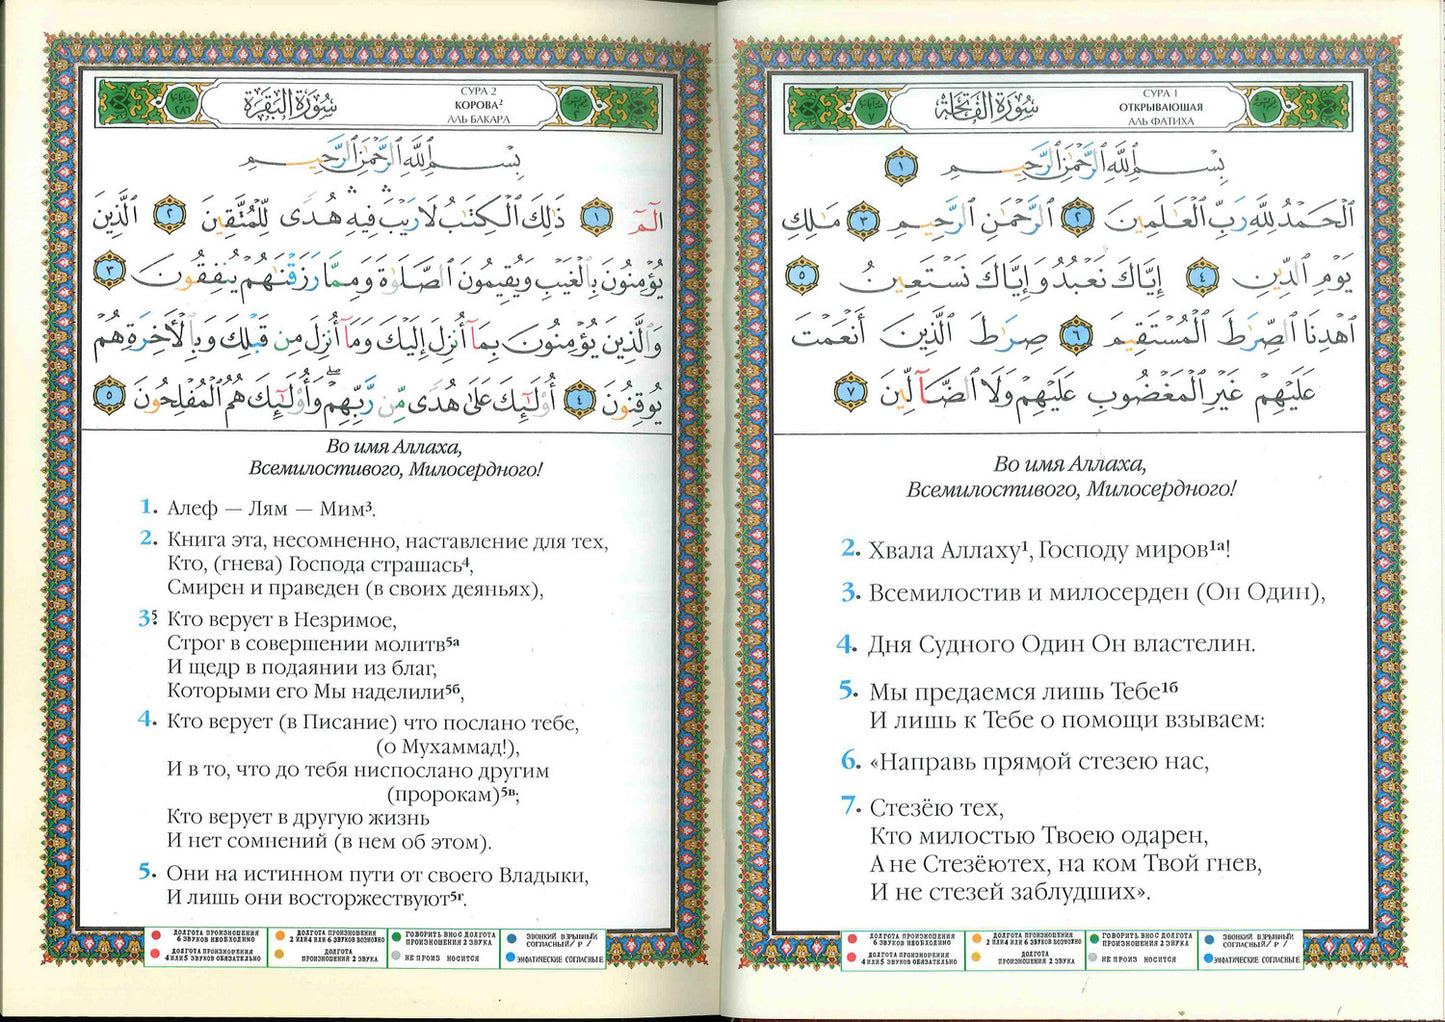 سُورَةُ الفَاتِحَةِ
СУРА 1
ОТКРЫВАЮЩАЯ
АЛЬ ФАТИХА
بِسْمِ ٱللَّهِ ٱلرَّحْمَٰنِ ٱلرَّحِيمِ ١
ٱلْحَمْدُ لِلَّهِ رَبِّ ٱلْعَٰلَمِينَ ٢ ٱلرَّحْمَٰنِ ٱلرَّحِيمِ ٣ مَٰلِكِ
يَوْمِ ٱلدِّينِ ٤ إِيَّاكَ نَعْبُدُ وَإِيَّاكَ نَسْتَعِينُ ٥
ٱهْدِنَا ٱلصِّرَٰطَ ٱلْمُسْتَقِيمَ ٦ صِرَٰطَ ٱلَّذِينَ أَنْعَمْتَ
عَلَيْهِمْ غَيْرِ ٱلْمَغْضُوبِ عَلَيْهِمْ وَلَا ٱلضَّآلِّينَ ٧
Во имя Аллаха,
Всемилостивого, Милосердного!
2. Хвала Аллаху¹, Господу миров¹ᵃ!
3. Всемилостив и милосерден (Он Один),
4. Дня Судного Один Он властелин.
5. Мы предаемся лишь Тебе¹ᵇ
И лишь к Тебе о помощи взываем:
6. «Направь прямой стезею нас,
7. Стезёю тех,
Кто милостью Твоею одарен,
А не Стезёютех, на ком Твой гнев,
И не стезей заблудших».
ДОЛГОТА ПРОИЗНОШЕНИЯ 6 ЗВУКОВ НЕОБХОДИМО
ДОЛГОТА ПРОИЗНОШЕНИЯ 4 ИЛИ 5 ЗВУКОВ ОБЯЗАТЕЛЬНО
ДОЛГОТА ПРОИЗНОШЕНИЯ 2 ИЛИ 4 ИЛИ 6 ЗВУКОВ ВОЗМОЖНО
ДОЛГОТА ПРОИЗНОШЕНИЯ 2 ЗВУКА
ГОВОРИТЬ В НОС ДОЛГОТА ПРОИЗНОШЕНИЯ 2 ЗВУКА
НЕ ПРОИЗ НОСИТСЯ
ЗВОНКИЙ ВЗРЫВНЫЙ СОГЛАСНЫЙ/ Р /
ЭМФАТИЧЕСКИЕ СОГЛАСНЫЕ
سُورَةُ البَقَرَةِ
СУРА 2
КОРОВА²
АЛЬ БАКАРА
بِسْمِ ٱللَّهِ ٱلرَّحْمَٰنِ ٱلرَّحِيمِ
الٓمٓ ١ ذَٰلِكَ ٱلْكِتَٰبُ لَا رَيْبَ ۛ فِيهِ ۛ هُدًى لِّلْمُتَّقِينَ ٢ ٱلَّذِينَ
يُؤْمِنُونَ بِٱلْغَيْبِ وَيُقِيمُونَ ٱلصَّلَوٰةَ وَمِمَّا رَزَقْنَٰهُمْ يُنفِقُونَ ٣
وَٱلَّذِينَ يُؤْمِنُونَ بِمَآ أُنزِلَ إِلَيْكَ وَمَآ أُنزِلَ مِن قَبْلِكَ وَبِٱلْأَخِرَةِ هُمْ
يُوقِنُونَ ٤ أُو۟لَٰٓئِكَ عَلَىٰ هُدًى مِّن رَّبِّهِمْ ۖ وَأُو۟لَٰٓئِكَ هُمُ ٱلْمُفْلِحُونَ ٥
Во имя Аллаха,
Всемилостивого, Милосердного!
1. Алеф — Лям — Мим³.
2. Книга эта, несомненно, наставление для тех,
Кто, (гнева) Господа страшась⁴,
Смирен и праведен (в своих деяньях),
3⁵. Кто верует в Незримое,
Строг в совершении молитв⁵ᵃ
И щедр в подаянии из благ,
Которыми его Мы наделили⁵ᵇ,
4. Кто верует (в Писание) что послано тебе,
(о Мухаммад!),
И в то, что до тебя ниспослано другим
(пророкам)⁵ᵛ;
Кто верует в другую жизнь
И нет сомнений (в нем об этом).
5. Они на истинном пути от своего Владыки,
И лишь они восторжествуют⁵ᵍ.
ДОЛГОТА ПРОИЗНОШЕНИЯ 6 ЗВУКОВ НЕОБХОДИМО
ДОЛГОТА ПРОИЗНОШЕНИЯ 4 ИЛИ 5 ЗВУКОВ ОБЯЗАТЕЛЬНО
ДОЛГОТА ПРОИЗНОШЕНИЯ 2 ИЛИ 4 ИЛИ 6 ЗВУКОВ ВОЗМОЖНО
ДОЛГОТА ПРОИЗНОШЕНИЯ 2 ЗВУКА
ГОВОРИТЬ В НОС ДОЛГОТА ПРОИЗНОШЕНИЯ 2 ЗВУКА
НЕ ПРОИЗ НОСИТСЯ
ЗВОНКИЙ ВЗРЫВНЫЙ СОГЛАСНЫЙ/ Р /
ЭМФАТИЧЕСКИЕ СОГЛАСНЫЕ